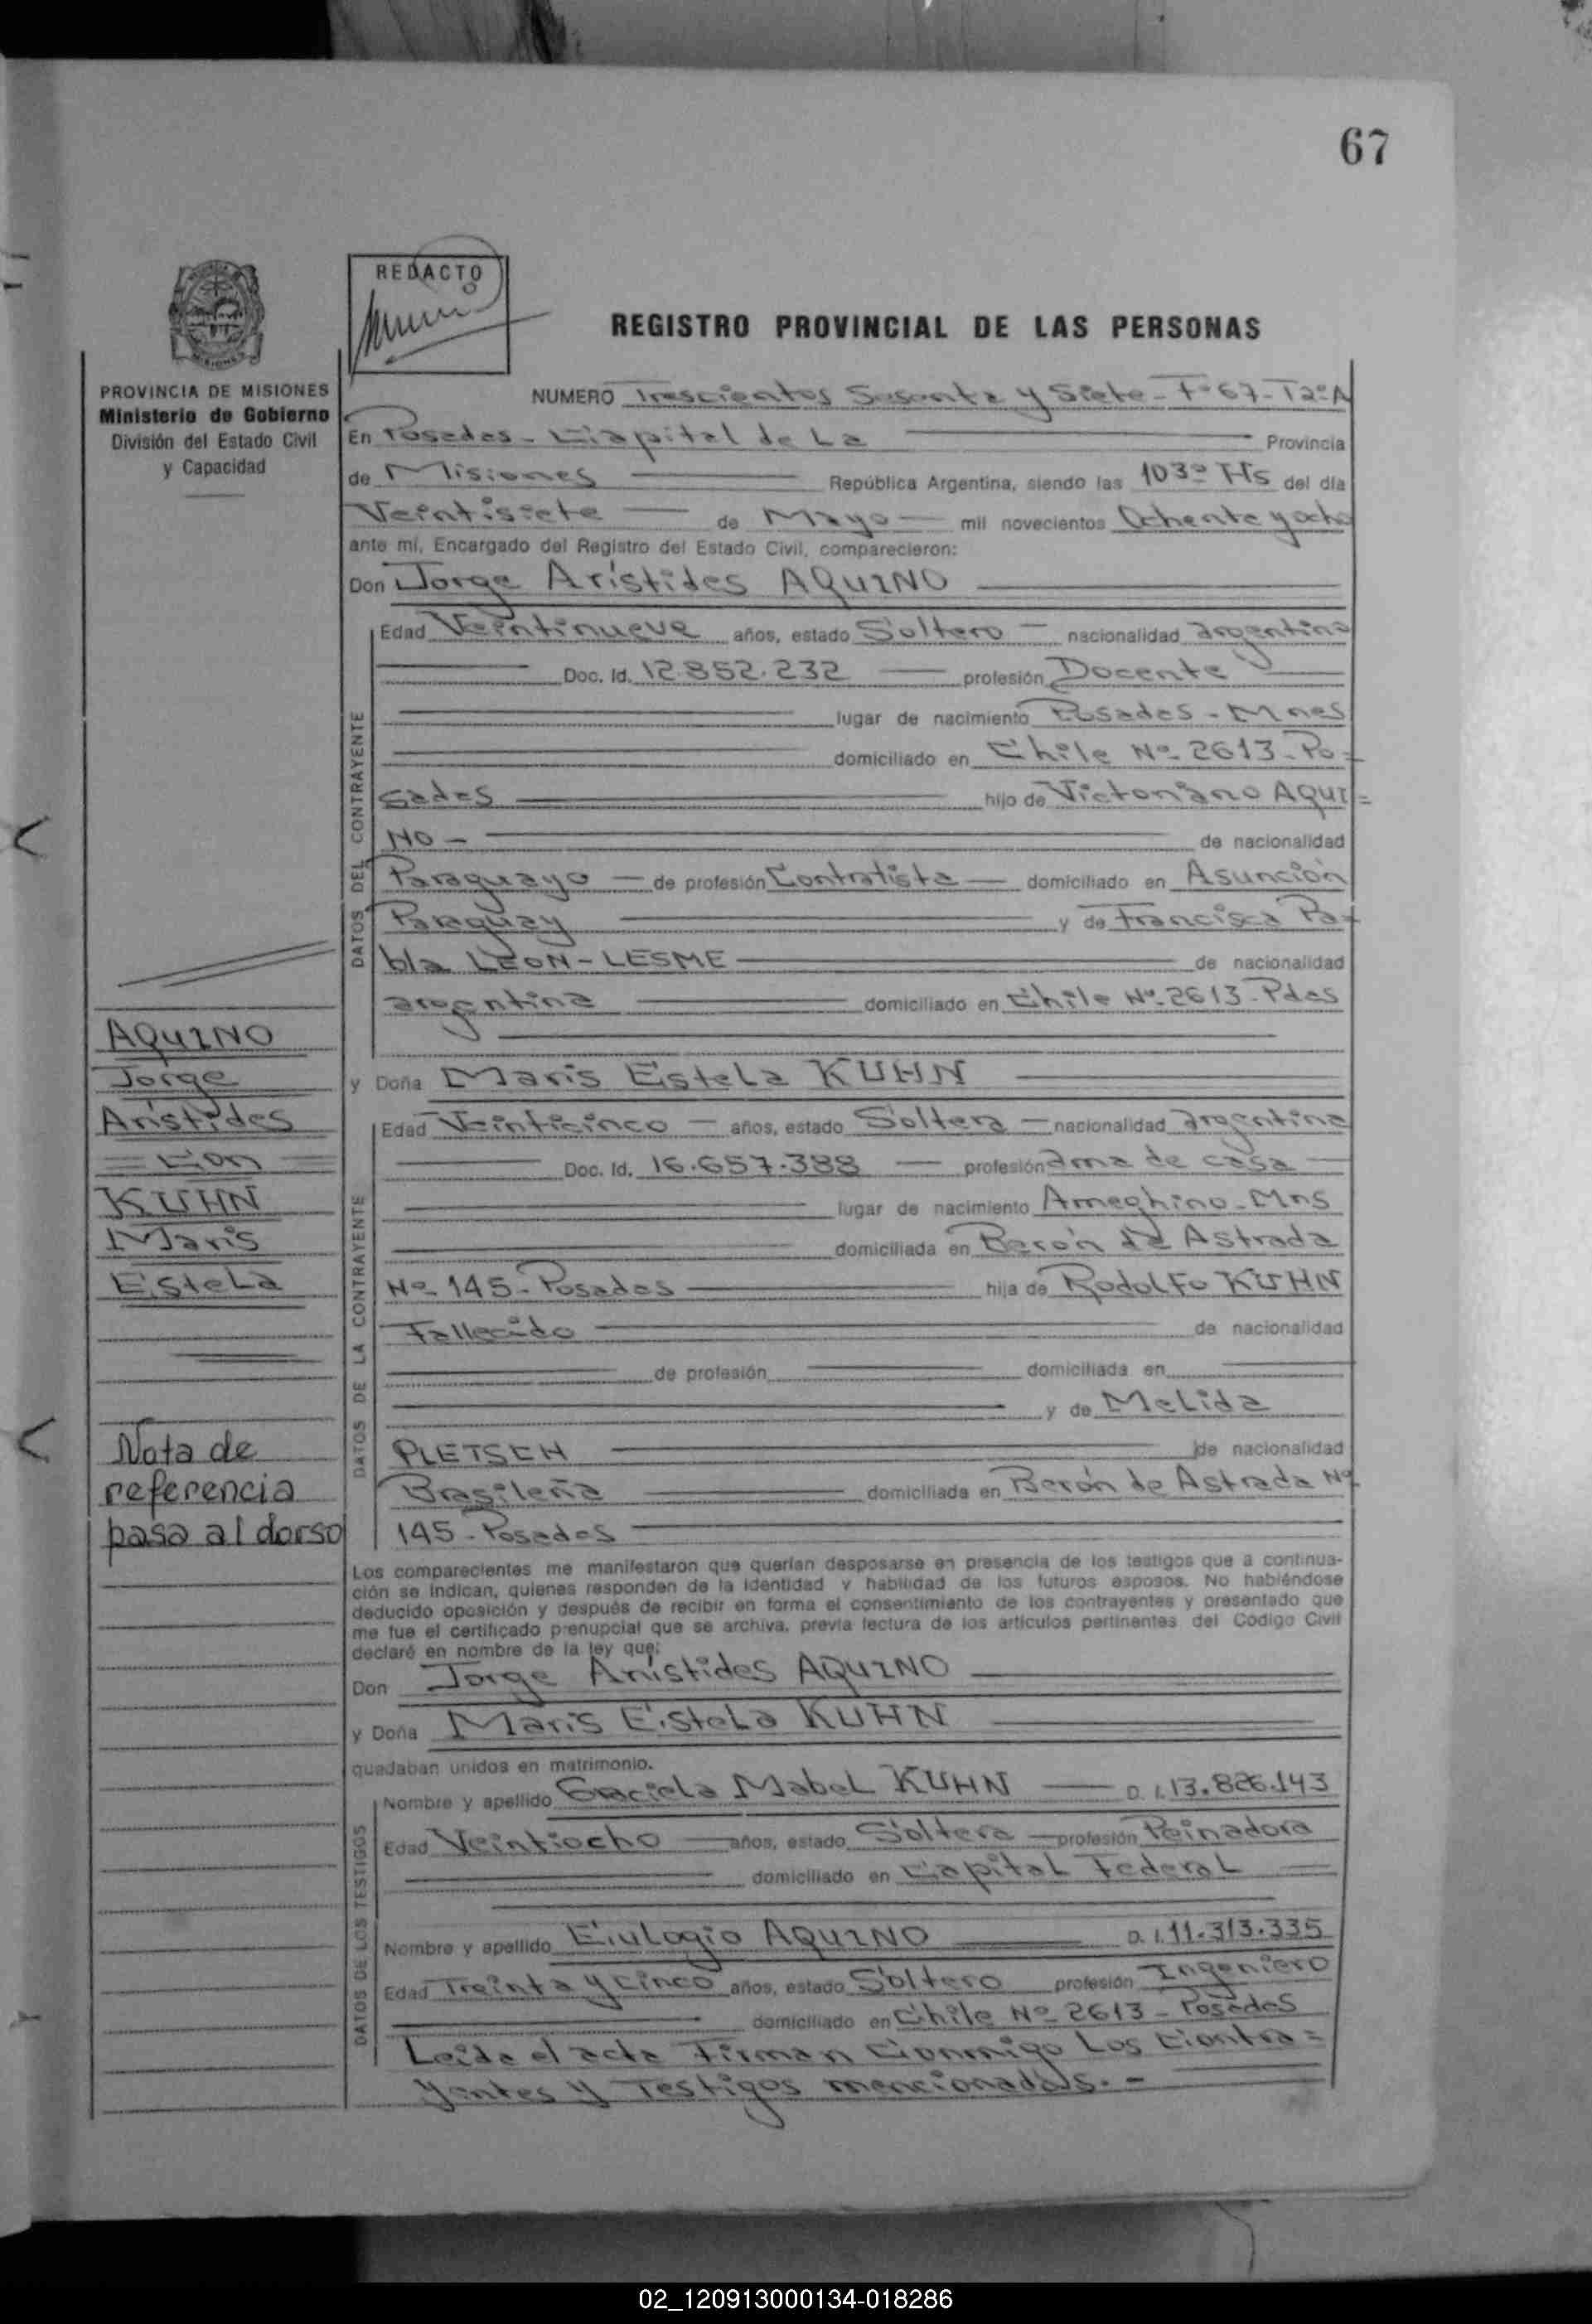 67
REDACTO
REGISTRO PROVINCIAL DE LAS PERSONAS
PROVINCIA DE MISIONES
Ministerio de Gobierno
División del Estado Civil
y Capacidad
NUMERO Trescientos Sesenta y Siete - Fº 67 - T2º A
En Posadas - Capital de La Provincia
de Misiones República Argentina, siendo las 1030 Hs del día
Veintisiete de Mayo mil novecientos Ochenta y ocho
ante mí, Encargado del Registro del Estado Civil, comparecieron:
Don Jorge Arístides AQUINO
DATOS DEL CONTRAYENTE
Edad Veintinueve años, estado Soltero nacionalidad argentina
Doc. Id. 12.852.232 profesión Docente
lugar de nacimiento Posadas - Mnes
domiciliado en Chile Nº 2613 - Po=
sadas hijo de Victoriano AQUI=
NO - de nacionalidad
Paraguayo de profesión Contratista domiciliado en Asunción
Paraguay y de Francisca Pa=
bla LEON - LESME de nacionalidad
argentina domiciliado en Chile Nº 2613 - Pdas
y Doña Maris Estela KUHN
DATOS DE LA CONTRAYENTE
Edad Veinticinco años, estado Soltera nacionalidad argentina
Doc. Id. 16.657.388 profesión ama de casa
lugar de nacimiento Ameghino - Mns
domiciliada en Berón de Astrada
Nº 145 - Posadas hija de Rodolfo KUHN
Fallecido de nacionalidad
de profesión domiciliada en
y de Melida
PLETSCH de nacionalidad
Brasileña domiciliada en Berón de Astrada Nº
145 - Posadas
AQUINO
Jorge
Arístides
= Con =
KUHN
Maris
Estela
Nota de
referencia
pasa al dorso
Los comparecientes me manifestaron que querían desposarse en presencia de los testigos que a continua-
ción se indican, quienes responden de la identidad y habilidad de los futuros esposos. No habiéndose
deducido oposición y después de recibir en forma el consentimiento de los contrayentes y presentado que
me fue el certificado prenupcial que se archiva, previa lectura de los artículos pertinentes del Codigo Civil
declaré en nombre de la ley que:
Don Jorge Arístides AQUINO
y Doña Maris Estela KUHN
quedaban unidos en matrimonio.
DATOS DE LOS TESTIGOS
Nombre y apellido Graciela Mabel KUHN D. I. 13.826.143
Edad Veintiocho años, estado Soltera profesión Peinadora
domiciliado en Capital Federal
Nombre y apellido Eulogio AQUINO D. I. 11.313.335
Edad Treinta y cinco años, estado Soltero profesión Ingeniero
domiciliado en Chile Nº 2613 - Posadas
Leida el acta Firman Conmigo Los Contra=
yentes y Testigos mencionados. -
02_120913000134-018286